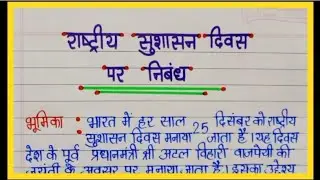 राष्ट्रीय सुशासन दिवस
पर निबंध
भूमिका : भारत में हर साल 25 दिसंबर को राष्ट्रीय
सुशासन दिवस मनाया जाता है। यह दिवस
देश के पूर्व प्रधानमंत्री श्री अटल बिहारी वाजपेयी की
जयंती के अवसर पर मनाया जाता है। इसका उद्देश्य